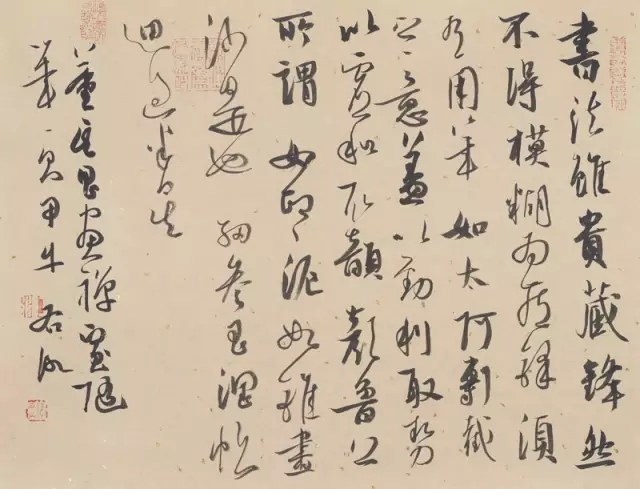 書法雖貴藏鋒然
不得模糊為藏鋒須
有用筆如太阿剸截
之意蓋以勁利取勢
以虛和取韻顏魯公
所謂如印印泥如錐畫
沙是也細參玉潤帖
思過半矣
董其昌畫禪室隨
筆一則甲午